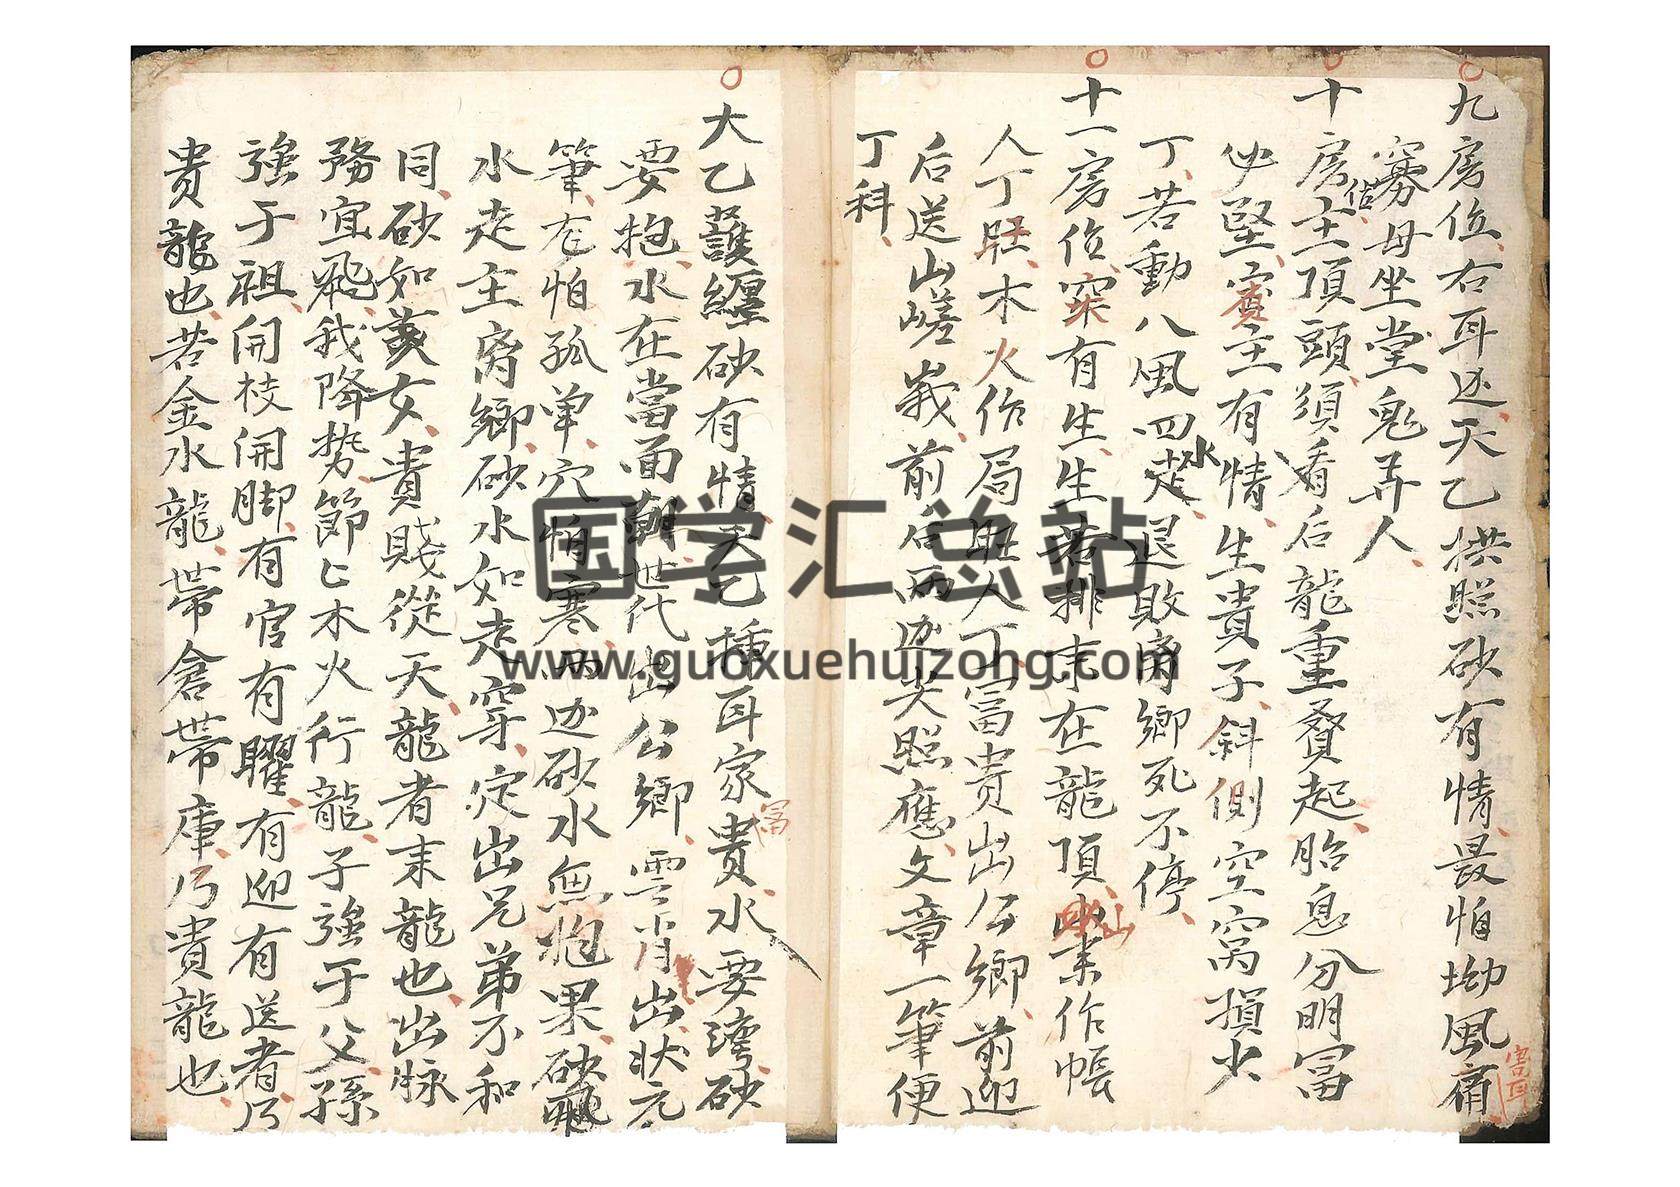 九房位右耳边天乙拱照砂有情最怕坳風痛
害耳
寡母坐堂鬼弄人
十房位主頂頭須看后龍重賢起胎息分明富
必堅賓主有情生貴子斜側空窝損少
丁若動八風四水走退敗离鄉死不停
十一房位穴有生生若排末在龍頂山來作帳
人丁旺木火作局旺人丁富貴出公鄉前迎
后送山嵯峩前后两边尖照應文章一筆便
丁科
大乙護纏砂有情天乙種耳家富貴水要湾砂
要抱水在當面朝世代出公鄉雲霄出状元
筆左怕孤单穴怕寒两边砂水無抱果砂飛
水走主离鄉砂水如走穿定出兄弟不和
同砂如美女貴賤從天龍者来龍也出脉
務宜飛我降势節匕木火行龍子強于父孫
強于祖開枝開脚有官有曜有迎有送者乃
貴龍也若金水龍带倉带庫乃貴龍也
国学汇总站
www.guoxuehuizong.com